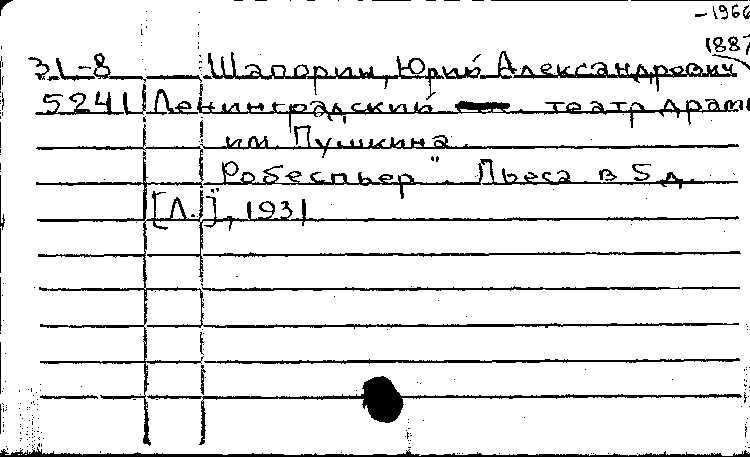 -1966
1887
31-8 Шапорин, Юрий Александрович
5241 Ленинградский театр драмы
им. Пушкина.
Робеспьер". Пьеса в 5 д.
[Л.], 1931